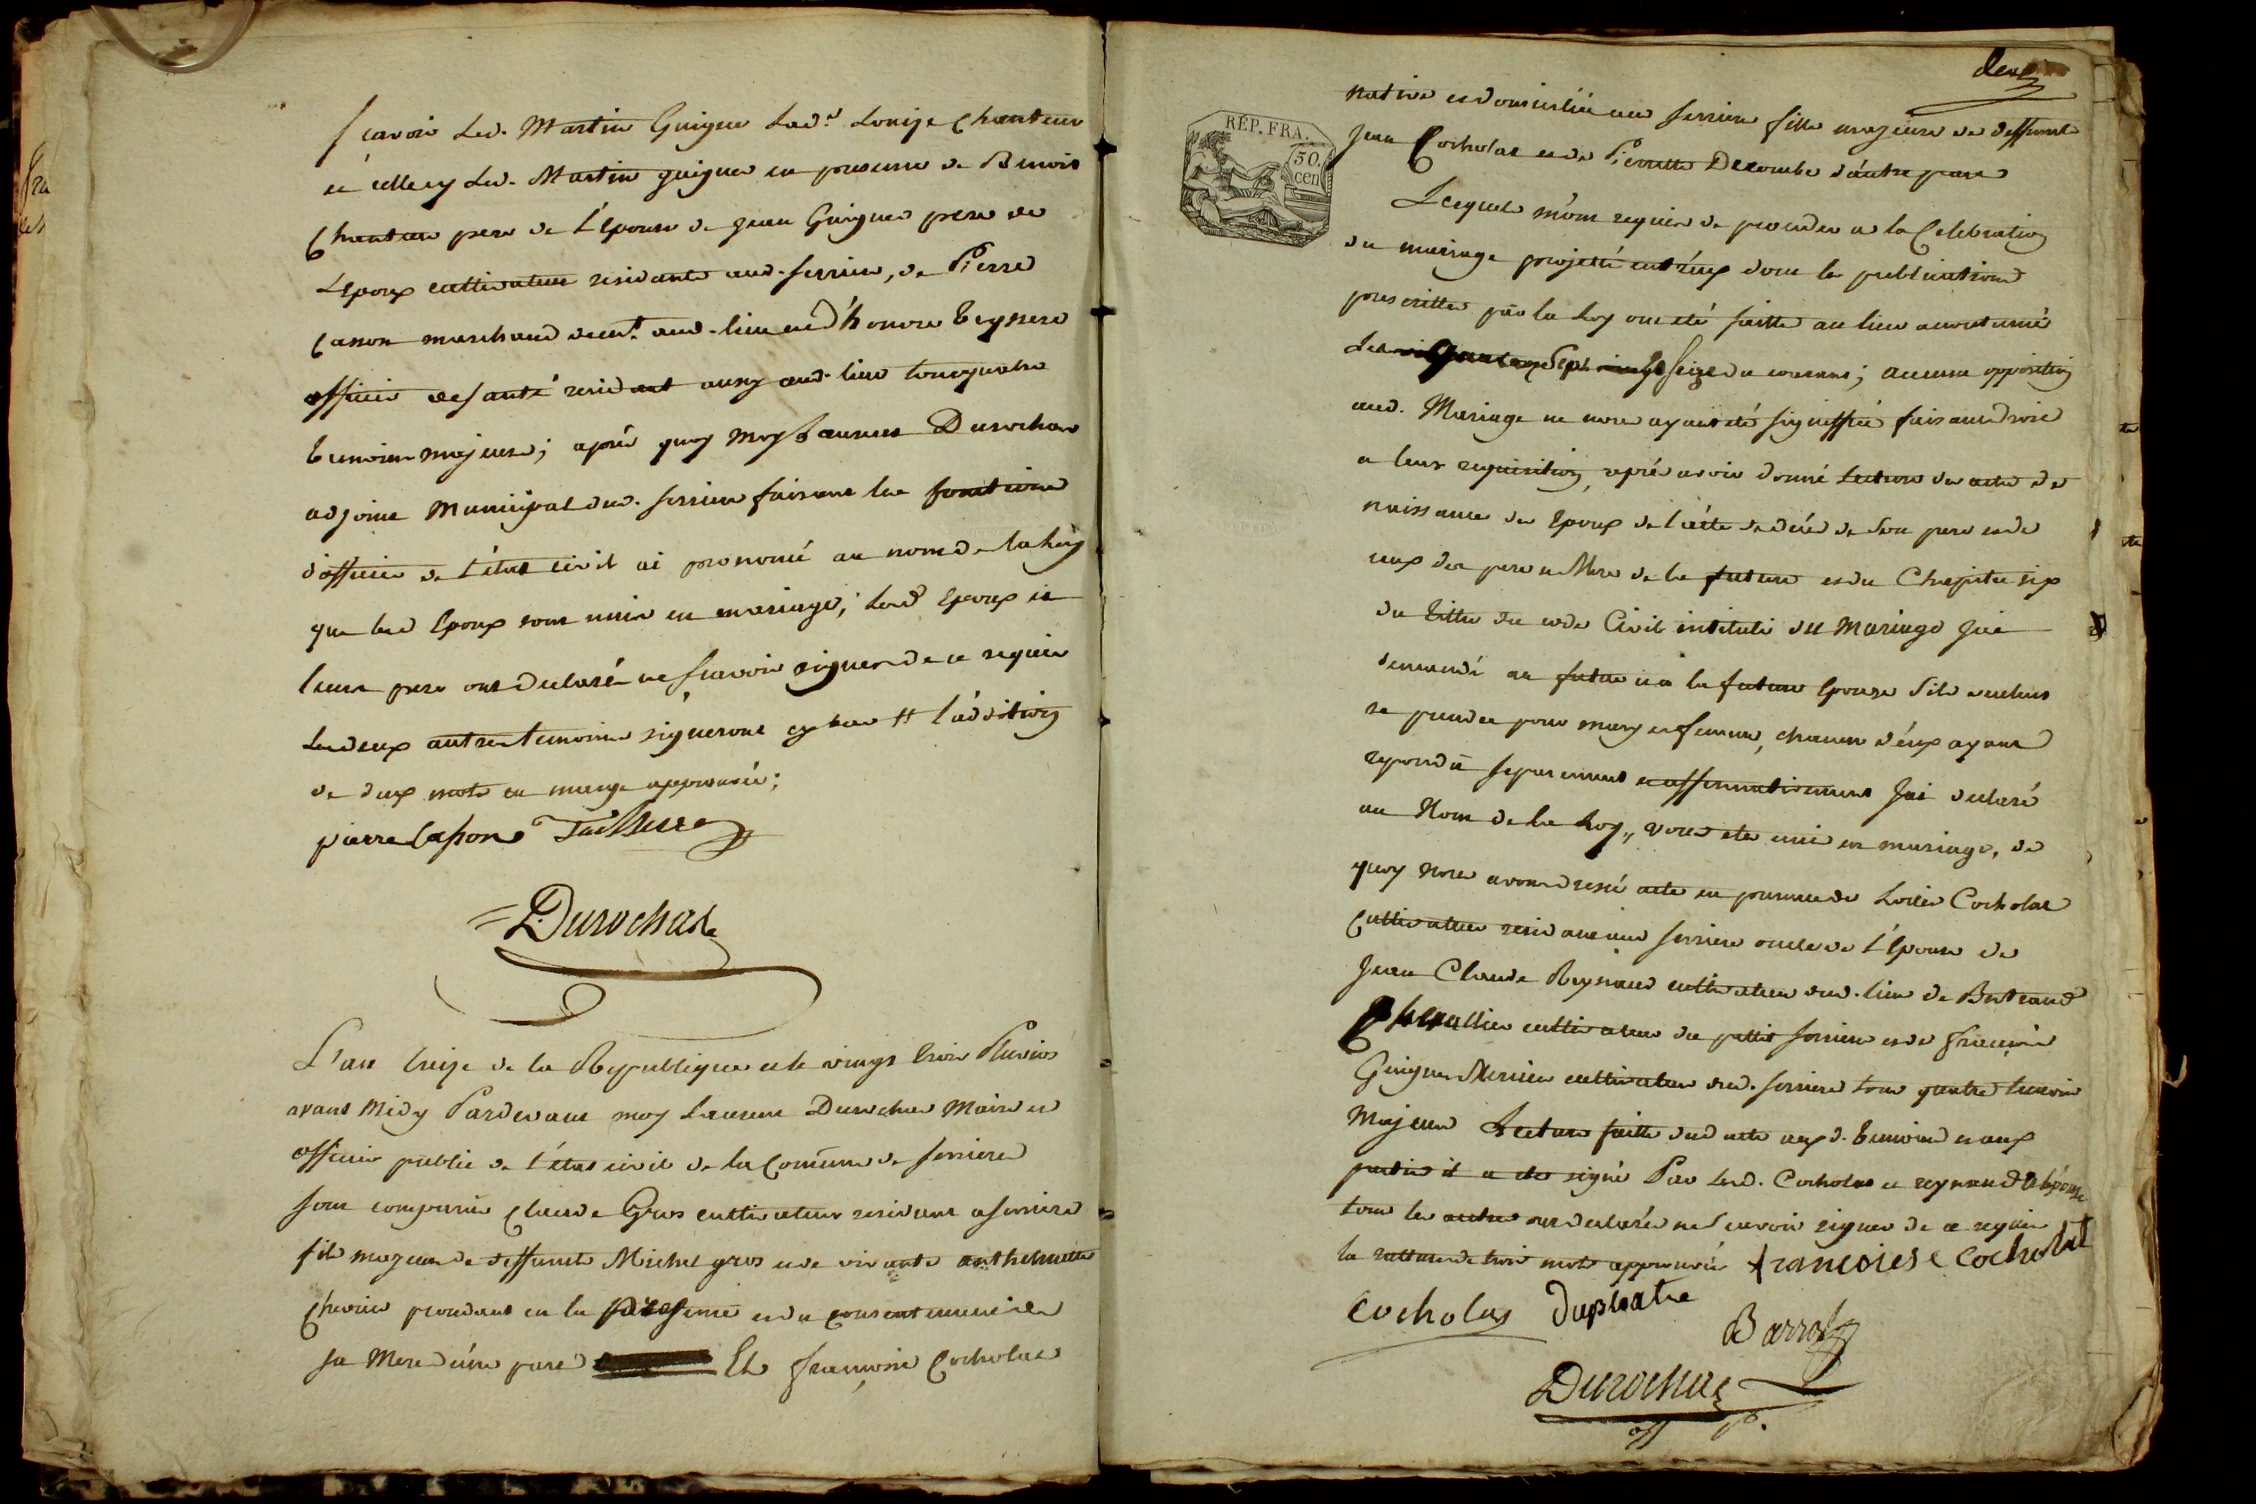 Scavoir Led. Martin Guigue Lad.e Louise Chanteur
et icelle cy Led. Martin guigue en presence de Benoit
Chanteur pere de L'Epouse de Jean Guigue pere de
L'Epoux cultivateurs residants aud. serriere, de Pierre
Cason marchand aud. lieu et d'honoré Teyssere
officier de santé residant aussy aud. lieu tous quatre
temoins majeurs; après quoy Moy Laurent Durochas
adjoint Municipal dud. serriere faisant les fonctions
d'officier de l'état civil ai prononcé au nom de la Loy
que led Epoux sont unis en mariage; Led Epoux et
leurs pere ont declaré ne scavoir signer de ce requis
Les deux autres temoins signeront cy bas # l'addition
de deux mots en marge approuvée;
pierre Cason
Durochas
L'an treize de la Republique et le vingt trois Pluvios
avant Midy Pardevant moy Laurent Durochas Maire et
officier public de l'état civil de la Commune de serriere
sont comparus Claude Gros cultivateur residant a serriere
fils majeur de deffunct Michel gros et de vivante anthelmette
procedant en la presence et du consentement de
sa Mere d'une part Et françoise Cocholat
deux
REP. FRA.
50.
cen
native et domiciliée aud serriere fille majeure de deffunct
Jean Cocholat et de Pierrette Decombe d'autre part
Lesquels m'ont requis de proceder a la Celebration
du mariage projetté entr'eux dont les publications
prescrittes par la Loy ont été faitte au lieu accoutumé
Les seize du courant; aucune opposition
aud. Mariage ne nous ayant été signiffiée faisant droit
a leur requisition, après avoir donné lecture des actes de
naissance des Epoux de l'acte de décés de son pere et de
ceux des pere et Mere de la future et du Chapitre six
du titre du code Civil intitulé du Mariage J'ai
demandé au futur et a la future Epouse s'ils veulent
se prendre pour mary et femme, chacun d'eux ayant
repondu separement et affirmativement J'ai declaré
au Nom de la Loy, vous etes unis en mariage, de
quoy nous avons dressé acte en presence de Louis Cocholat
Cultivateur residant aud serriere oncle de L'Epouse de
Jean Claude Reynaud cultivateur dud. lieu de Bertrand
Chevallier cultivateur du petit serriere et de françois
Guigue Mercier cultivateur dud. serriere tous quatre temoins
Majeurs Lecture faitte dud acte aux d. temoins et aux
parties il a été signé Par Led. Cocholat et reynaud et l'épouse
tous les autres ont declaré ne scavoir signer de ce requis
la rature de trois mots approuvée françoise Cocholat
Cocholat duplatre
Barrot
Durochas
off p.